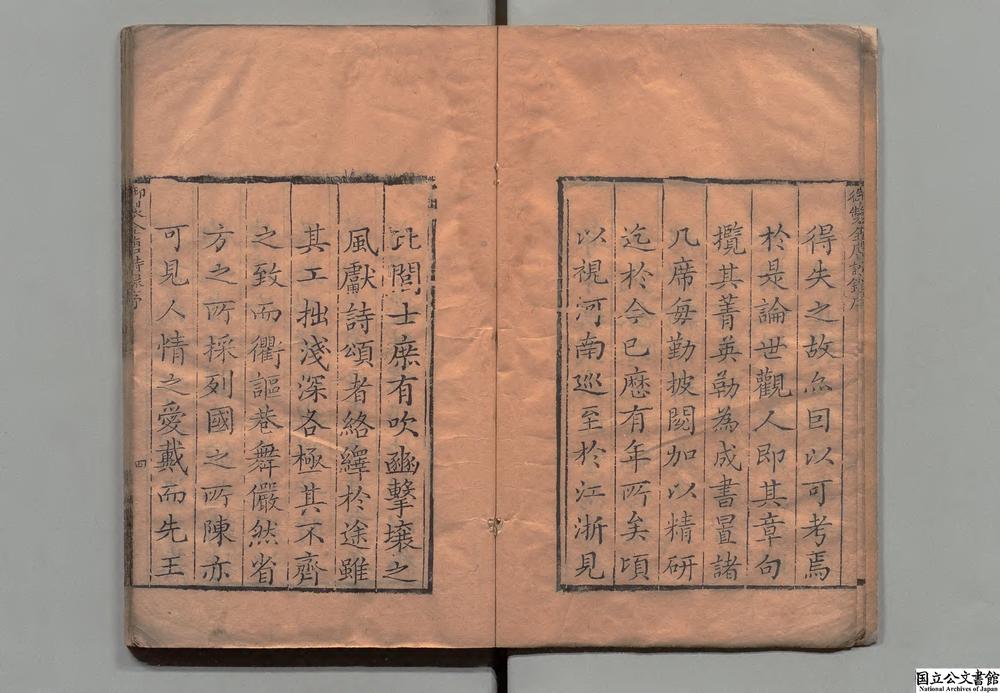 御製全唐詩錄序
得失之故亦囙以可考焉
於是論世觀人即其章句
攬其菁英勒為成書置諸
几席每勤披閱加以精研
迄於今已歷有年所矣頃
以視河南巡至於江浙見
比閭士庶有吹豳擊壤之
風獻詩頌者絡繹於途雖
其工拙淺深各極其不齊
之致而衢謳巷舞儼然省
方之所採列國之所陳亦
可見人情之愛戴而先王
御製全唐詩錄序
四
国立公文書館
National Archives of Japan